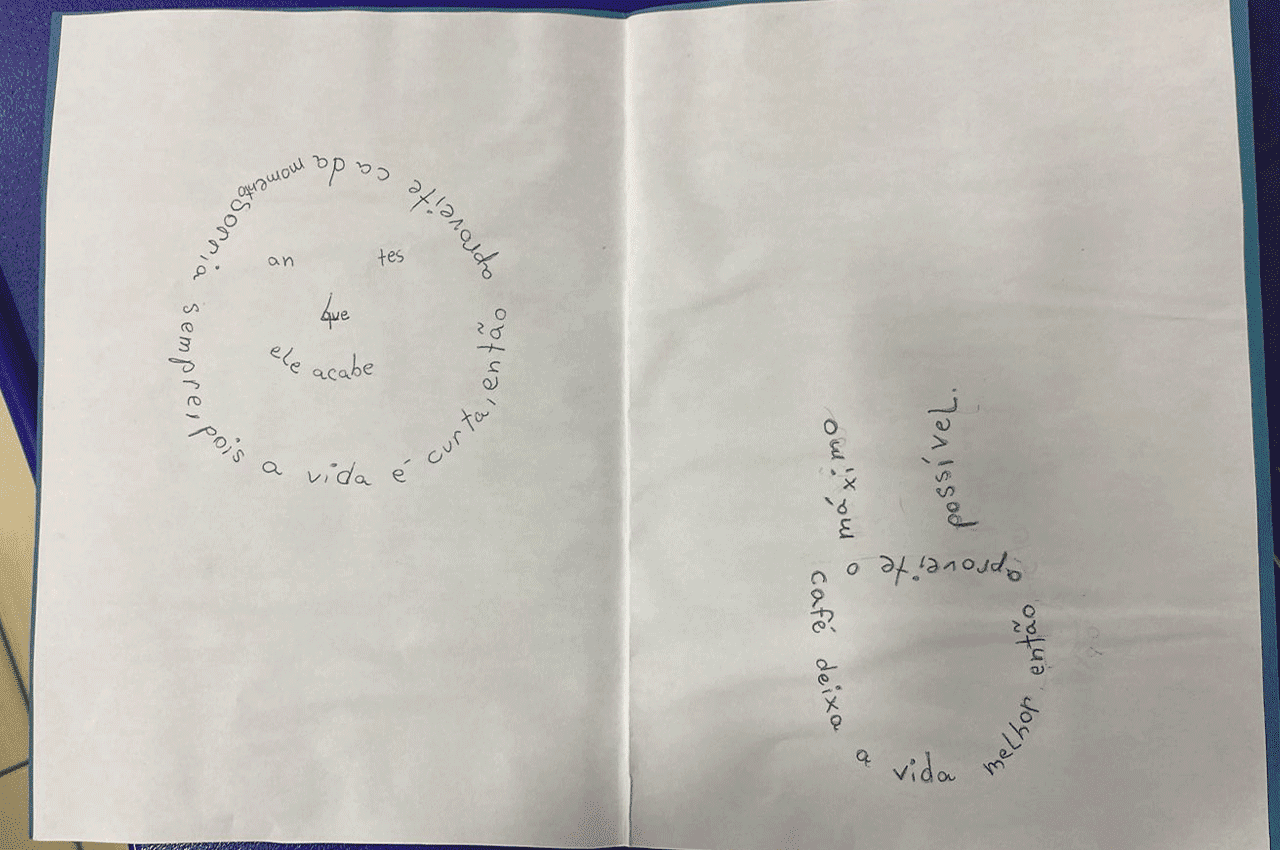 Sorria sempre, pois a vida é curta, então aproveite ca da momento
an tes
que
ele acabe
café deixa a vida melhor, então aproveite o máximo possível.